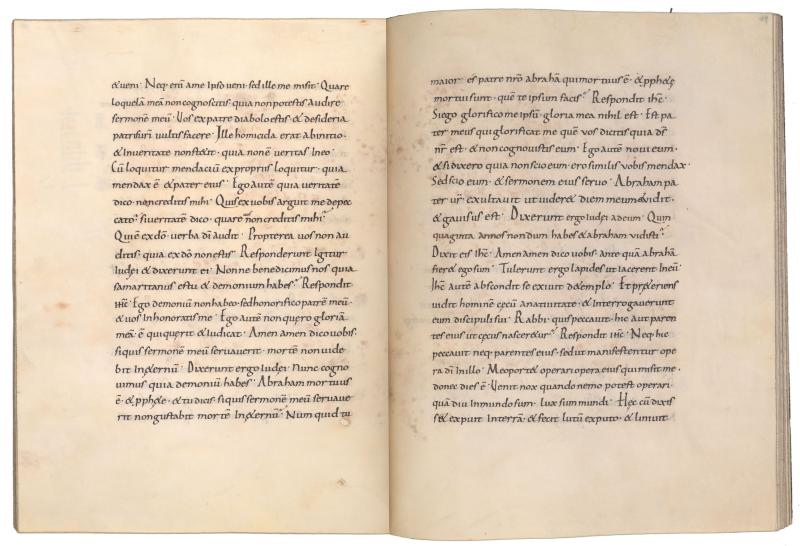 & veni · Neq · eni ame ipso veni · sed ille me misit · Quare
loquelā meā non cognoscitis · quia non potestis audire
sermonē meū · Vos ex patre diabolo estis · & desideria
patris vr̄i vultis facere · Ille homicida erat ab initio ·
& In veritate non st&it · quia non ē veritas In eo ·
Cū loquitur mendaciū ex propriis loquitur · quia
mendax ē & pater eius · Ego autē quia veritatē
dico · non creditis mihi · Quis ex vobis arguit me de pec
cato · si veritatē dico · quare non creditis mihi ·
Qui ē ex dō · verba dī audit · Propterea vos non au
ditis · quia ex dō non estis · Responderunt Igitur
Iudęi & dixerunt ei · Nonne bene dicimus nos quia
samaritanus es tu & demonium habes · Respondit
ihc · Ego demoniū non habeo · sed honorifico patrē meū ·
& vos Inhonoratis me · Ego autē non quero gloriā
meā · ē qui querit & Iudicat · Amen amen dico vobis ·
si quis sermonē meū servaverit · mortē non vide
bit In &ernū · Dixerunt ergo Iudęi · Nunc cogno
vimus quia demoniū habes · Abraham mortuus
ē · & pph&e · & tu dicis · si quis sermonē meū servave
rit non gustabit mortē In &ernū · Num quid tu
maior es patre nr̄o abrahā qui mortuus ē · & pph&ę
mortui sunt · quē te ipsum facis · Respondit ihc ·
Si ego glorifico me ipsū · gloria mea nihil est · Est pa
ter meus qui glorificat me quē vos dicitis quia ds̄
nr̄ est · & non cognovistis eum · Ego autē novi eum ·
& si dixero quia non scio eum · ero similis vobis mendax ·
Sed scio eum · & sermonem eius servo · Abraham pa
ter vr̄ · exultavit ut vider& diem meum & vidit ·
& gavisus est · Dixerunt ergo Iudęi ad eum · Quin
quaginta annos nondum habes & abraham vidisti ·
Dixit eis ihc · Amen amen dico vobis · ante quā abrahā
fier& ego sum · Tulerunt ergo lapides ut iacerent In eū ·
Ihc autē abscondit se exivit de templo · Et pr&eriens
vidit hominē cęcū a nativitate · & Interrogaverunt
eum discipuli sui · Rabbi · quis peccavit · hic aut paren
tes eius ut cęcus nascer&ur · Respondit ihc · Neq · hic
peccavit neq · parentes eius · sed ut manifestentur ope
ra dī In illo · Me oport& operari opera eius qui misit me ·
donec dies ē · Venit nox quando nemo potest operari ·
quā diu In mundo sum · lux sum mundi · Hęc cū dixis
s& · expuit In terrā · & fecit lutū ex puto · & linivit